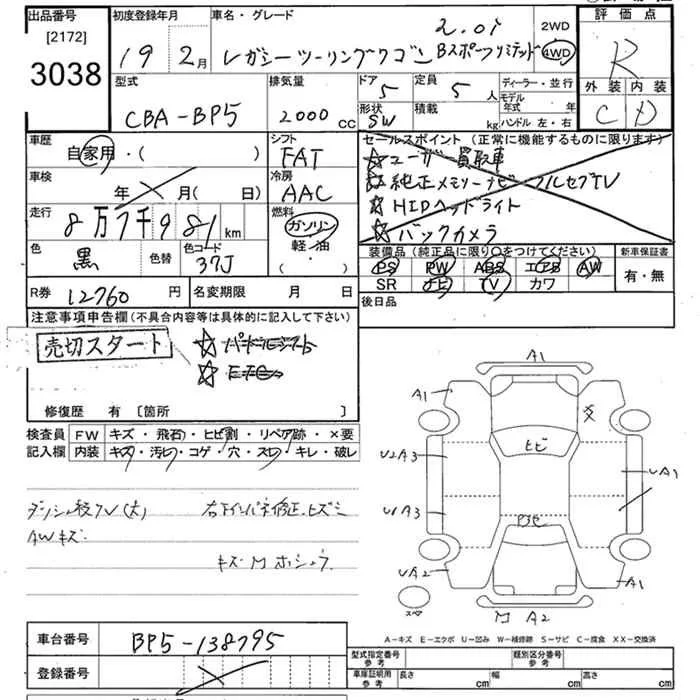 出品番号 初度登録年月 車名・グレード 評価点
[2172]
3038
19 2月 レガシーツーリングワゴン 2.0i Bスポーツリミテッド 2WD 4WD R
外装 内装
C D
型式 排気量 ドア 定員 ディーラー・並行
CBA-BP5 2000cc 5 5人 モデル年式 年
形状 積載 ハンドル 左・右
SW kg
車歴 シフト セールスポイント(正常に機能するものに限ります)
自家用・( ) FAT ☆ユーザー買取車
車検 冷房 ☆純正メモリーナビ フルセグTV
年 月(日) AAC ☆HIDヘッドライト
走行 燃料 ☆バックカメラ
8万7千981km ガソリン 軽・油・
色 色替 色コード 装備品(純正品に限り○をつけてください) 新車保証書
黒 37J PS PW ABS エアB AW 有・無
SR ナビ TV カワ
R券 12760円 名変期限 月 日 後日品
注意事項申告欄(不具合内容等は具体的に記入して下さい)
売切スタート ☆パドルシフト
☆ETC
修復歴 有 [箇所 ]
検査員記入欄 FW キズ・飛石・ヒビ割・リペア跡・×要
内装 キズ・汚れ・コゲ・穴・スレ・キレ・破レ
AWキズ
キズ M
A1
A1
ヒビ
UA3 UA1
UA3
UA2 A1
スペア
M A2
A-キズ E-エクボ U-凹み W-補修跡 S-サビ C-腐食 XX-交換済
車台番号 BP5-138795
登録番号
型式指定番号 参考 類別区分番号 参考
車庫証明用 参考 長さ cm 幅 cm 高さ cm